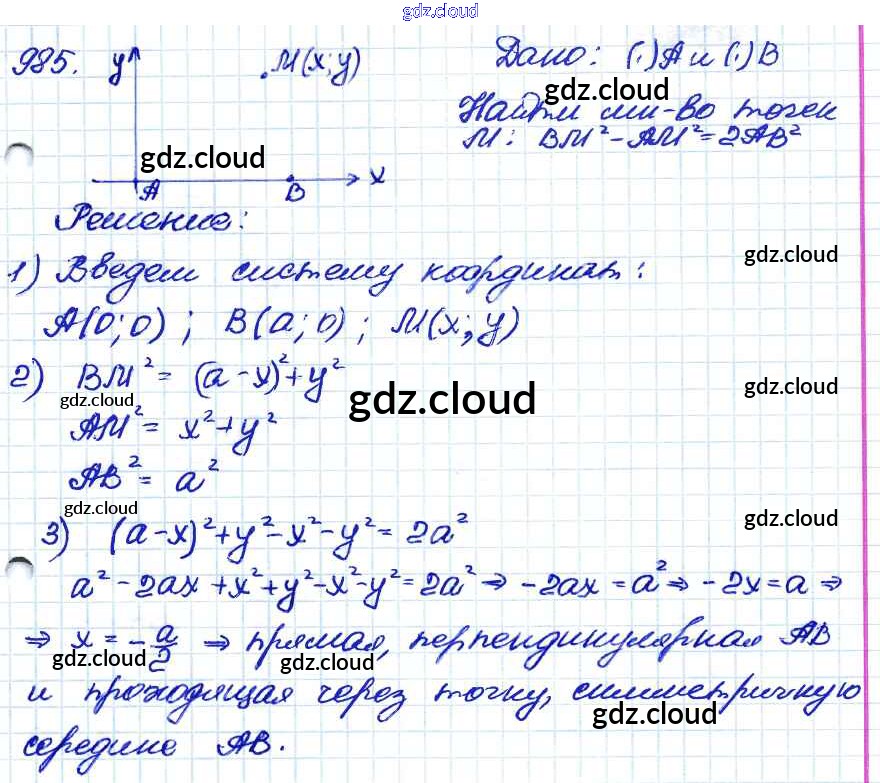 gdz.cloud
985. y M(x;y) Дано: (·)A и (·)B
gdz.cloud
Найти мн-во точек
M: BM² - AM² = 2AB²
gdz.cloud
x
A B
Решение:
gdz.cloud
1) Введем систему координат:
A(0;0); B(a;0); M(x;y)
2) BM² = (a-x)² + y²
gdz.cloud gdz.cloud gdz.cloud
AM² = x² + y²
AB² = a²
gdz.cloud gdz.cloud
3) (a-x)² + y² - x² - y² = 2a²
a² - 2ax + x² + y² - x² - y² = 2a² ⇒ -2ax = a² ⇒ -2x = a ⇒
⇒ x = -a/2 ⇒ прямая, перпендикулярная AB
gdz.cloud gdz.cloud
и проходящая через точку, симметричную
gdz.cloud
середине AB.